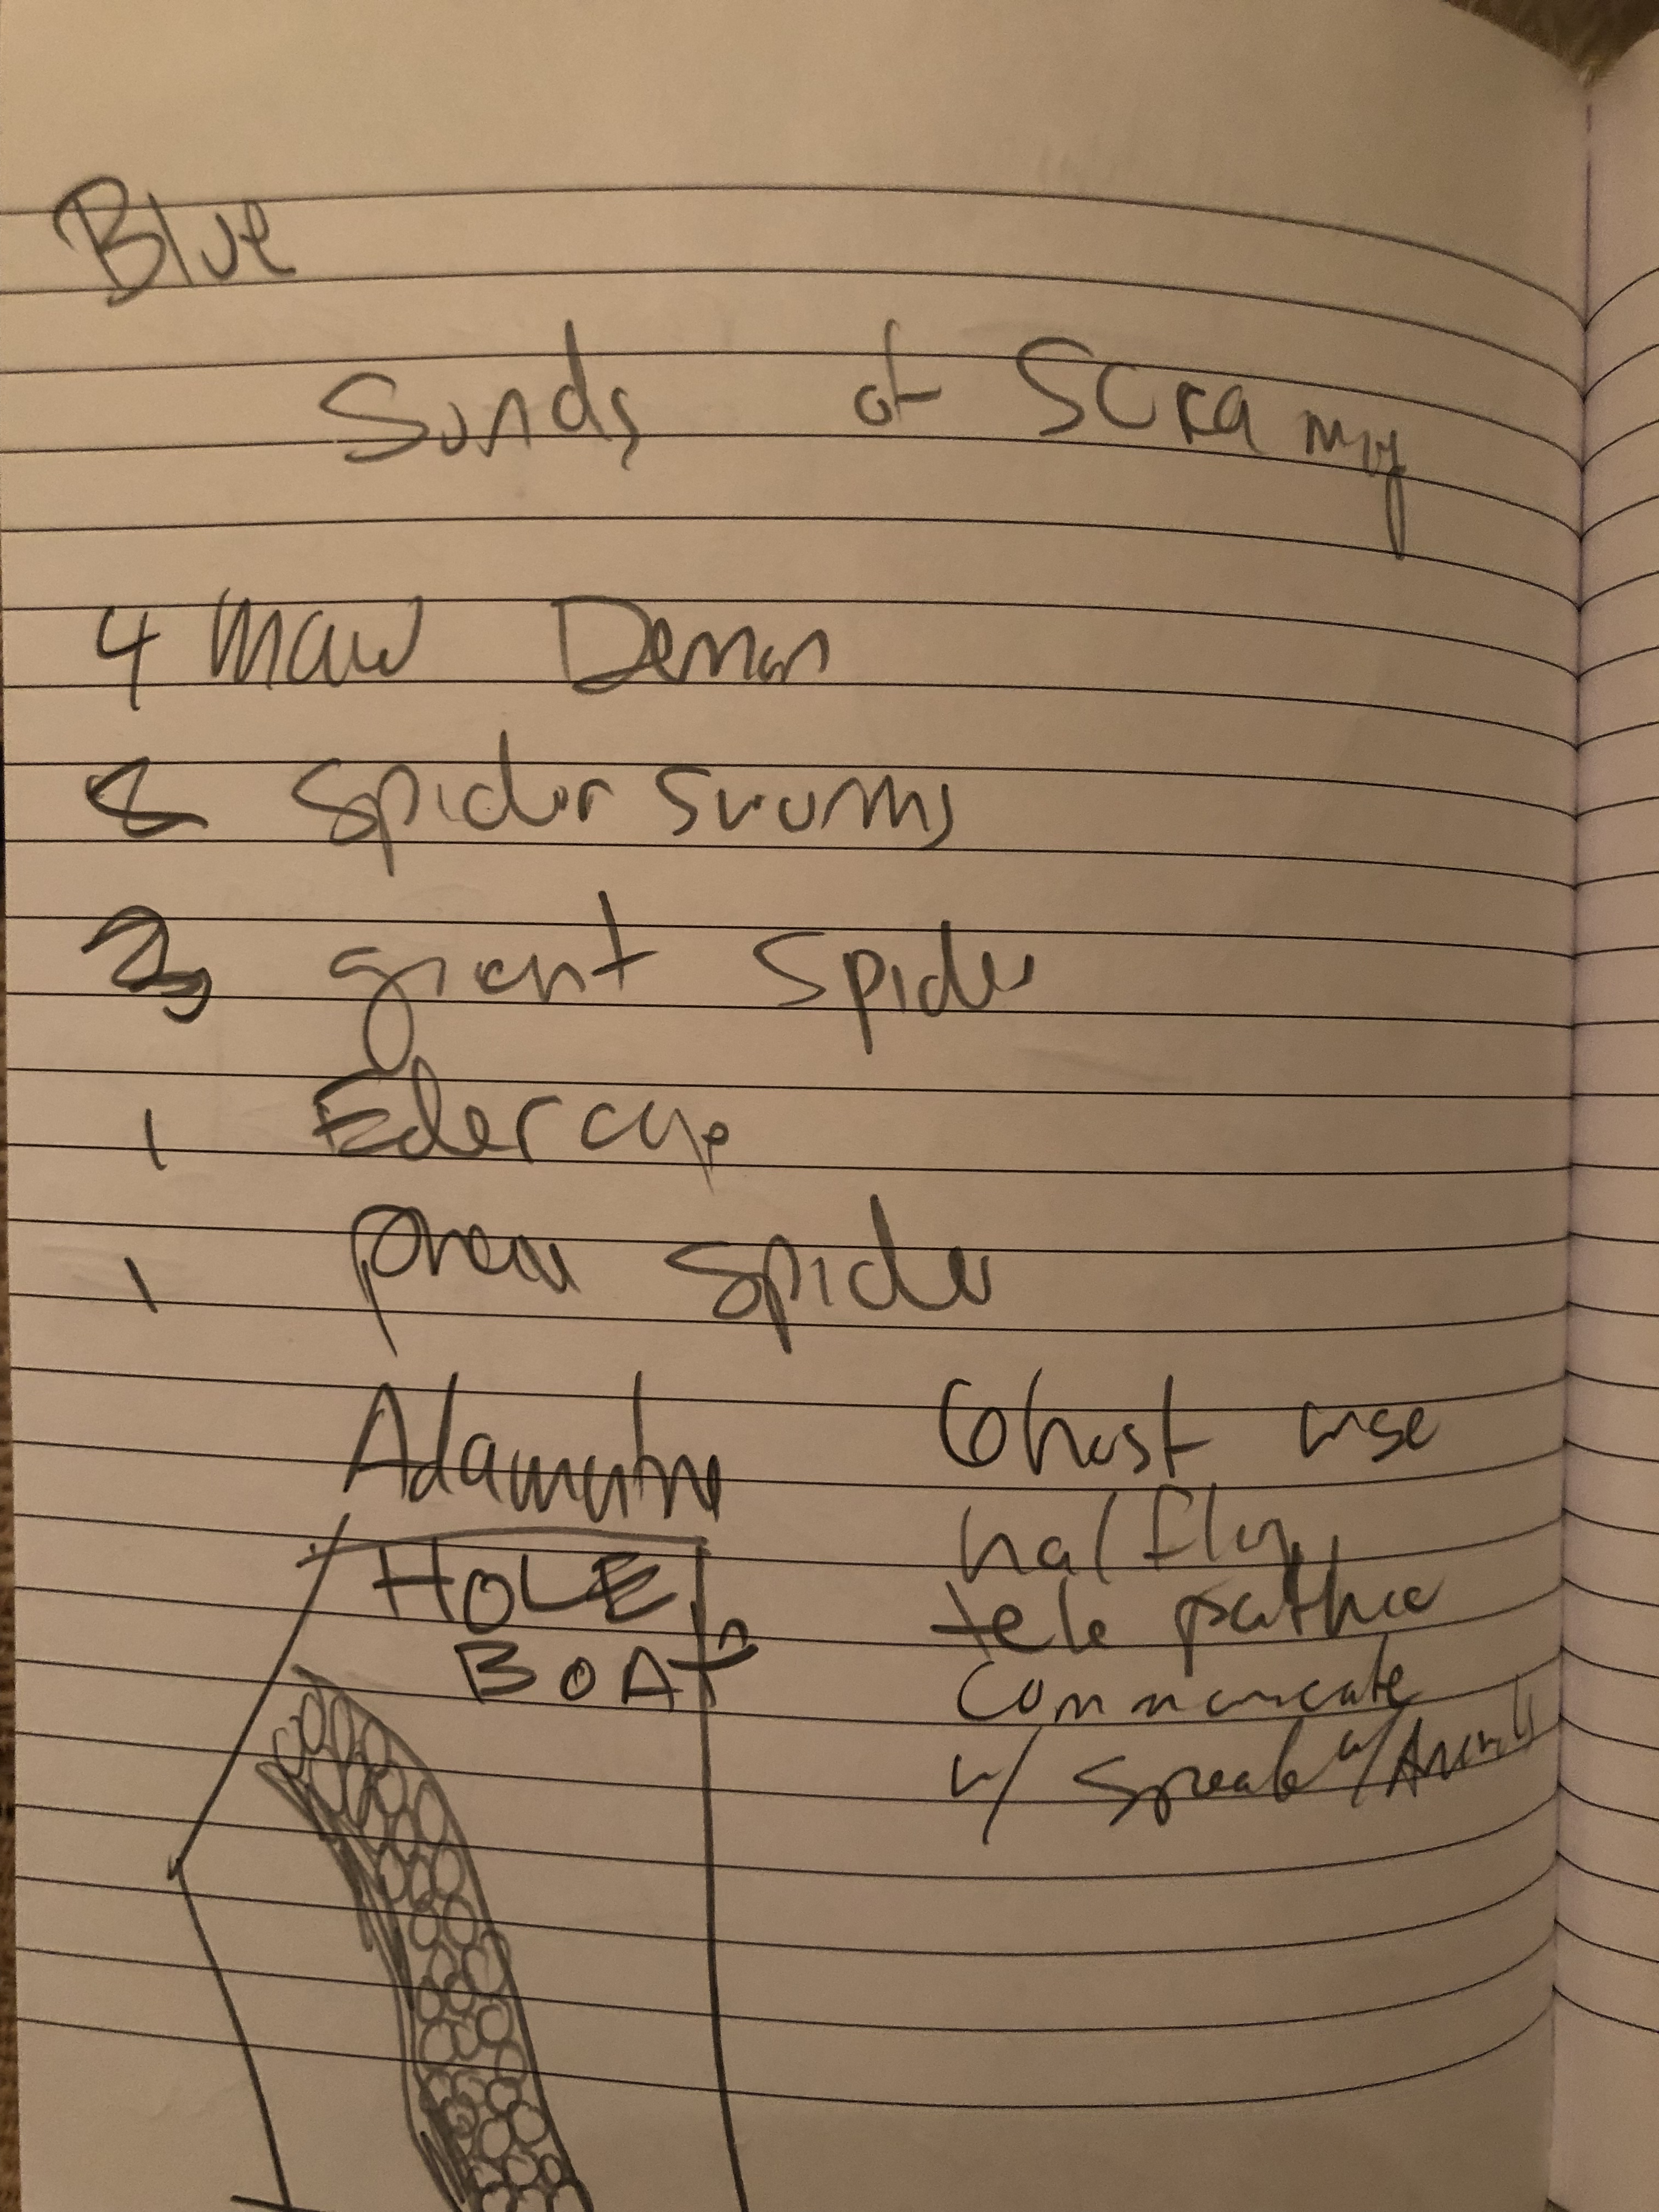 Blue
Sunds of
4 Maw Demon
Spider swarms
3 giant Spider
1 Edercap
1 Spider
Adamantine
HOLE
BOAT
Ghost wise
halfling
tele pathic
Communicate
w/ Speak w/ Animals